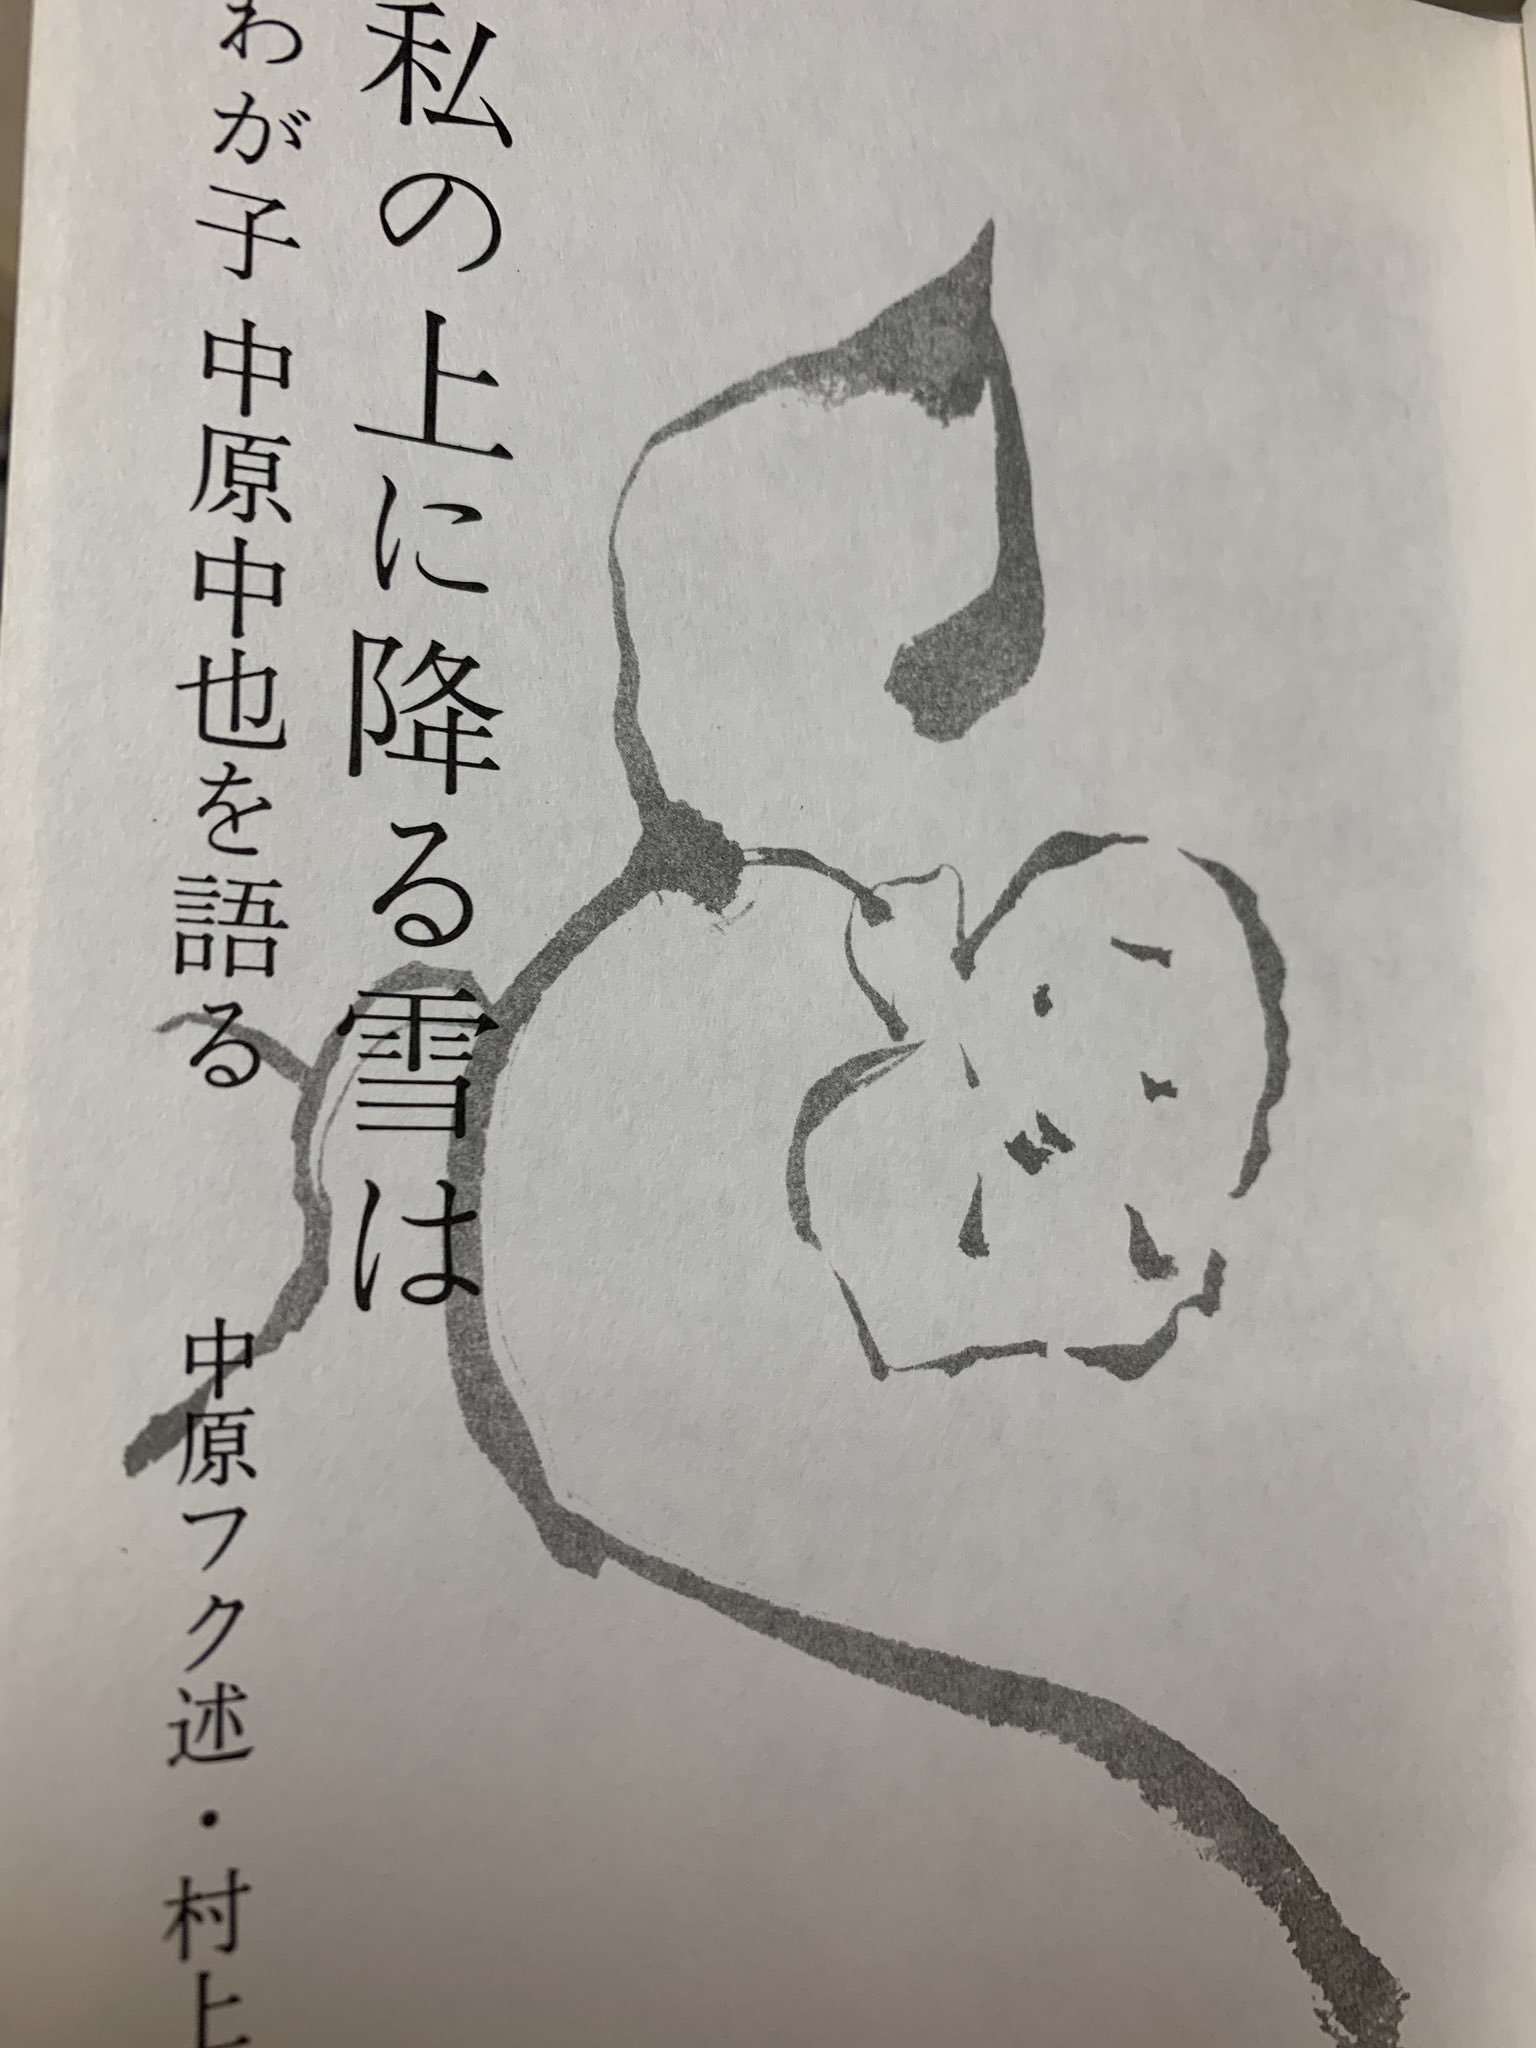 私の上に降る雪は
わが子中原中也を語る
中原フク述・村上